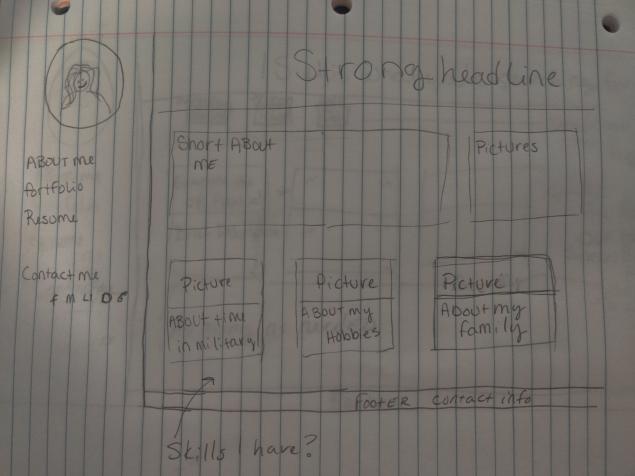 Strong headline
ABout me
Portfolio
Resume
Contact me
Short ABout
ME
Pictures
Picture
ABOUT time
in military
Picture
ABOUT my
Hobbies
Picture
About my
family
FOOTER Contact info
Skills I have?